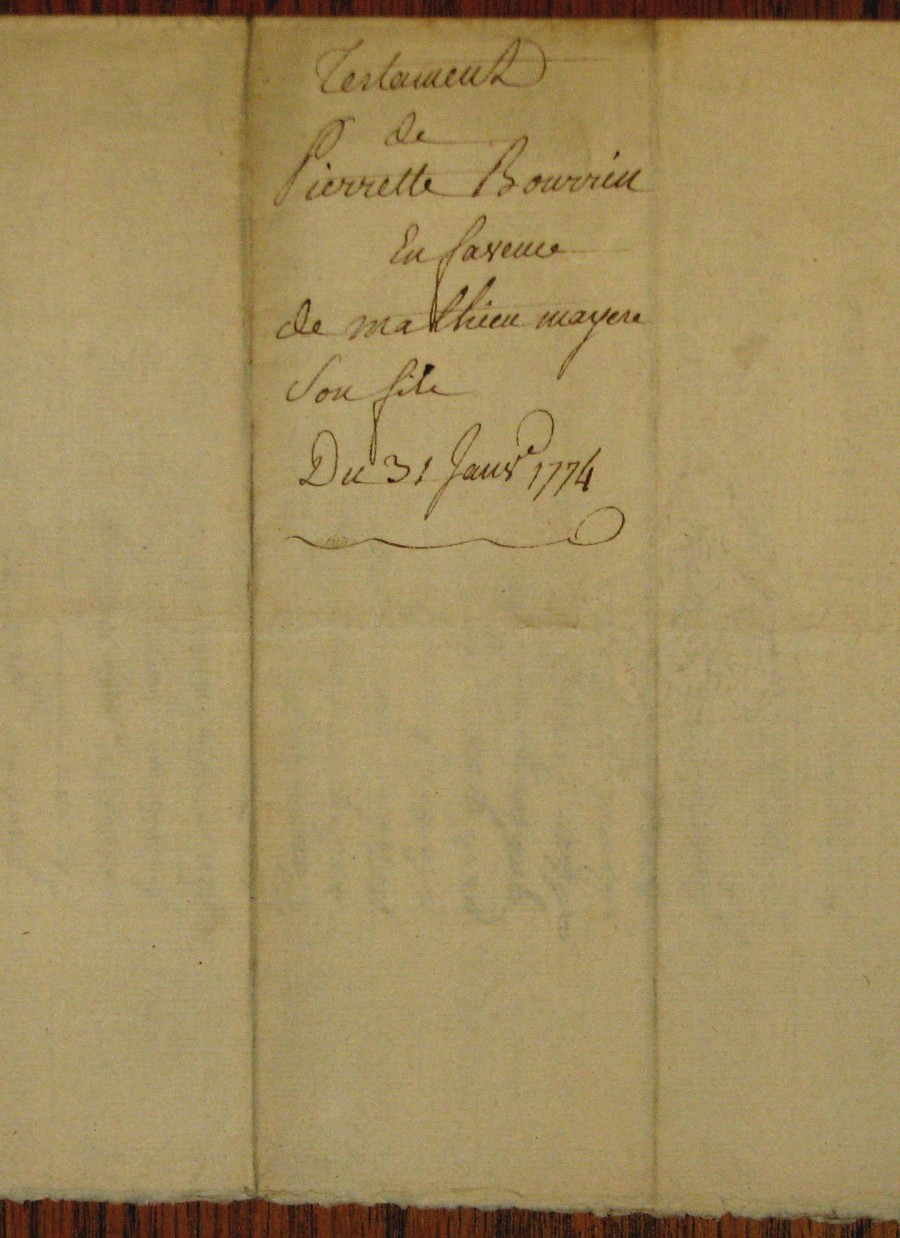 Testament
de
Pierrette Bourrin
En faveur
de mathieu mayere
Son fils
Du 31 Janv.e 1774